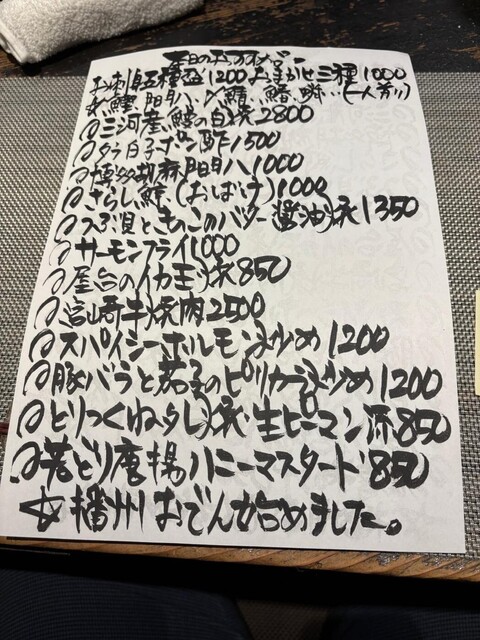 本日のおっすすメー
お刺身五種盛1200 おまかせ三種1000
〆鰹、 〆鯖、鰭、 (一人前)
三河産、鰻の白焼2800
タラ白子ポン酢1500
博多胡麻 1000
さらし鯨(おばけ)1000
つぶ貝ときのこのバター醤油焼1350
サーモンフライ1000
屋台のイカ玉焼850
宮崎牛焼肉2500
スパイシーホルモン炒め1200
豚バラと茄子のピリカラ炒め1200
とりつくねタレ焼 生ピーマン添850
若どり唐揚ハニーマスタード850
☆播州おでん始めました。